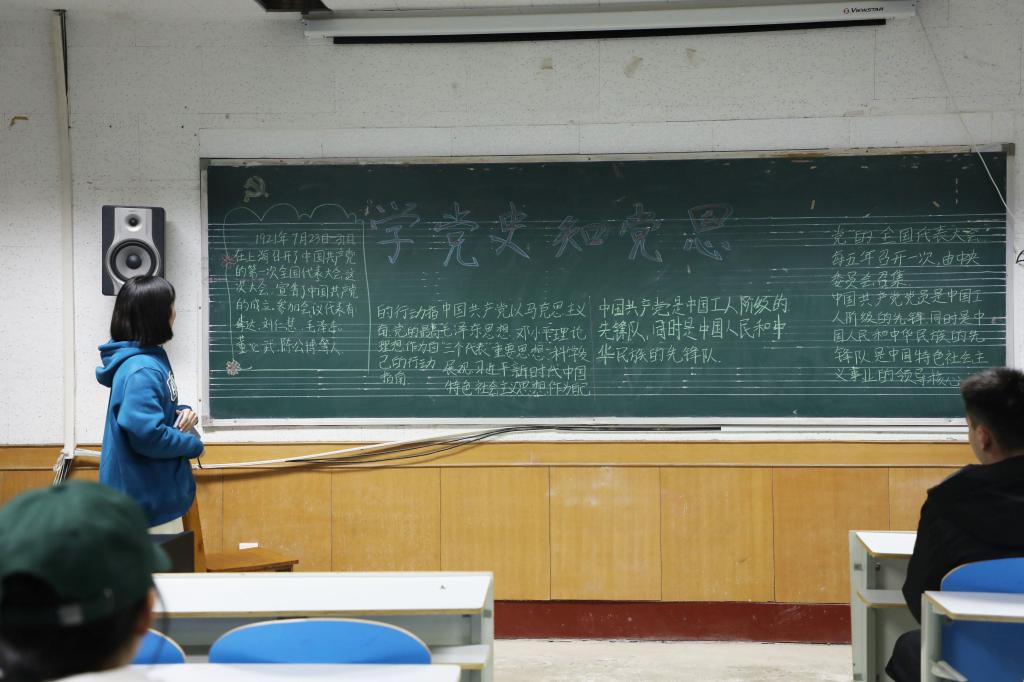 VIEWSTAR
学党史知党思
1921年7月23日-31日
在上海召开了中国共产党
的第一次全国代表大会,这
次大会,宣告了中国共产党
的成立.参加会议代表有
李达.刘仁静.毛泽东.
董必武.陈公博等人.
的行动指
南.党的最高
理想作为自
己的行动
指南
中国共产党以马克思主义
毛泽东思想.邓小平理论.
三个代表重要思想.科学发
展观.习近平新时代中国
特色社会主义思想作为自己
中国共产党是中国工人阶级的
先锋队,同时是中国人民和中
华民族的先锋队.
党的全国代表大会
每五年召开一次,由中央
委员会召集
中国共产党党员是中国工
人阶级的先锋.同时是中
国人民和中华民族的先
锋队是中国特色社会主
义事业的领导核心